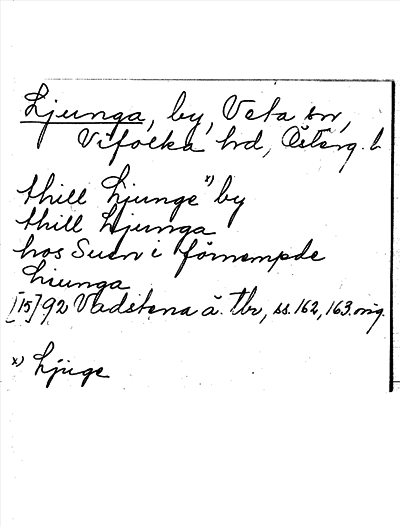 Ljunga, by, Veta sn,
Vifolka hd, Österg. l
thill Ljunge x) by
thill Ljunga
hos Suen i förnempde
Liunga
[15]92 Vadstena ä. Tbr, ss. 162, 163. orig.
x) Ljuge